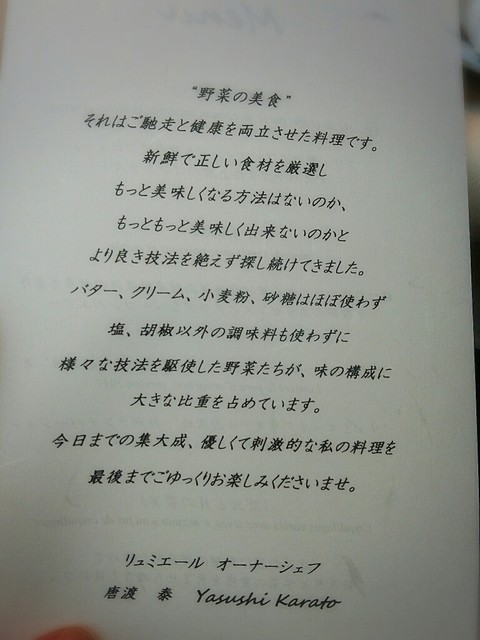 Menu
“野菜の美食”
それはご馳走と健康を両立させた料理です。
新鮮で正しい食材を厳選し
もっと美味しくなる方法はないのか、
もっともっと美味しく出来ないのかと
より良き技法を絶えず探し続けてきました。
バター、クリーム、小麦粉、砂糖はほぼ使わず
塩、胡椒以外の調味料も使わずに
様々な技法を駆使した野菜たちが、味の構成に
大きな比重を占めています。
今日までの集大成、優しくて刺激的な私の料理を
最後までごゆっくりお楽しみくださいませ。
リュミエール　オーナーシェフ
唐渡　泰　Yasushi Karato